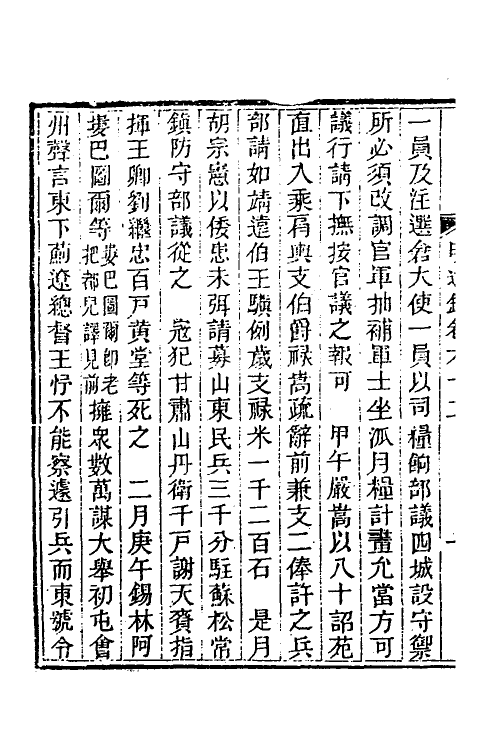 一員及注選倉大使一員以司糧餉部議四城設守禦
所必須改調官軍抽補軍士坐派月糧計畫允當方可
議行請下撫按官議之報可　甲午嚴嵩以八十詔苑
直出入乘肩輿支伯爵祿嵩疏辭前兼支二俸許之兵
部請如靖遠伯王驥例歲支祿米一千二百石　是月
胡宗憲以倭患未弭請募山東民兵三千分駐蘇松常
鎮防守部議從之　寇犯甘肅山丹衛千戶謝天賚指
揮王卿劉繼忠百戶黃堂等死之　二月庚午錫林阿
婁巴圖爾等婁巴圖爾卽老把都兒譯見前擁衆數萬謀大舉初屯會
州聲言東下薊遼總督王忬不能察遽引兵而東號令